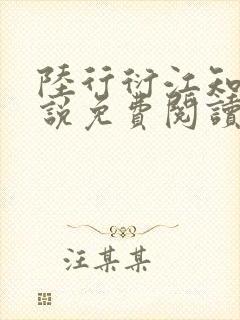 陸行衍江知
說免費閱讀
汪某某